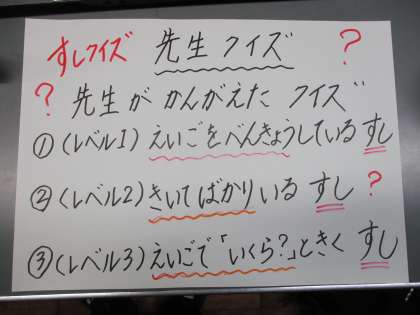 すしクイズ 先生クイズ ?
? 先生がかんがえた クイズ
①(レベル1)えいごをべんきょうしているすし
②(レベル2)きいてばかりいるすし?
③(レベル3)えいごで「いくら?」ときくすし